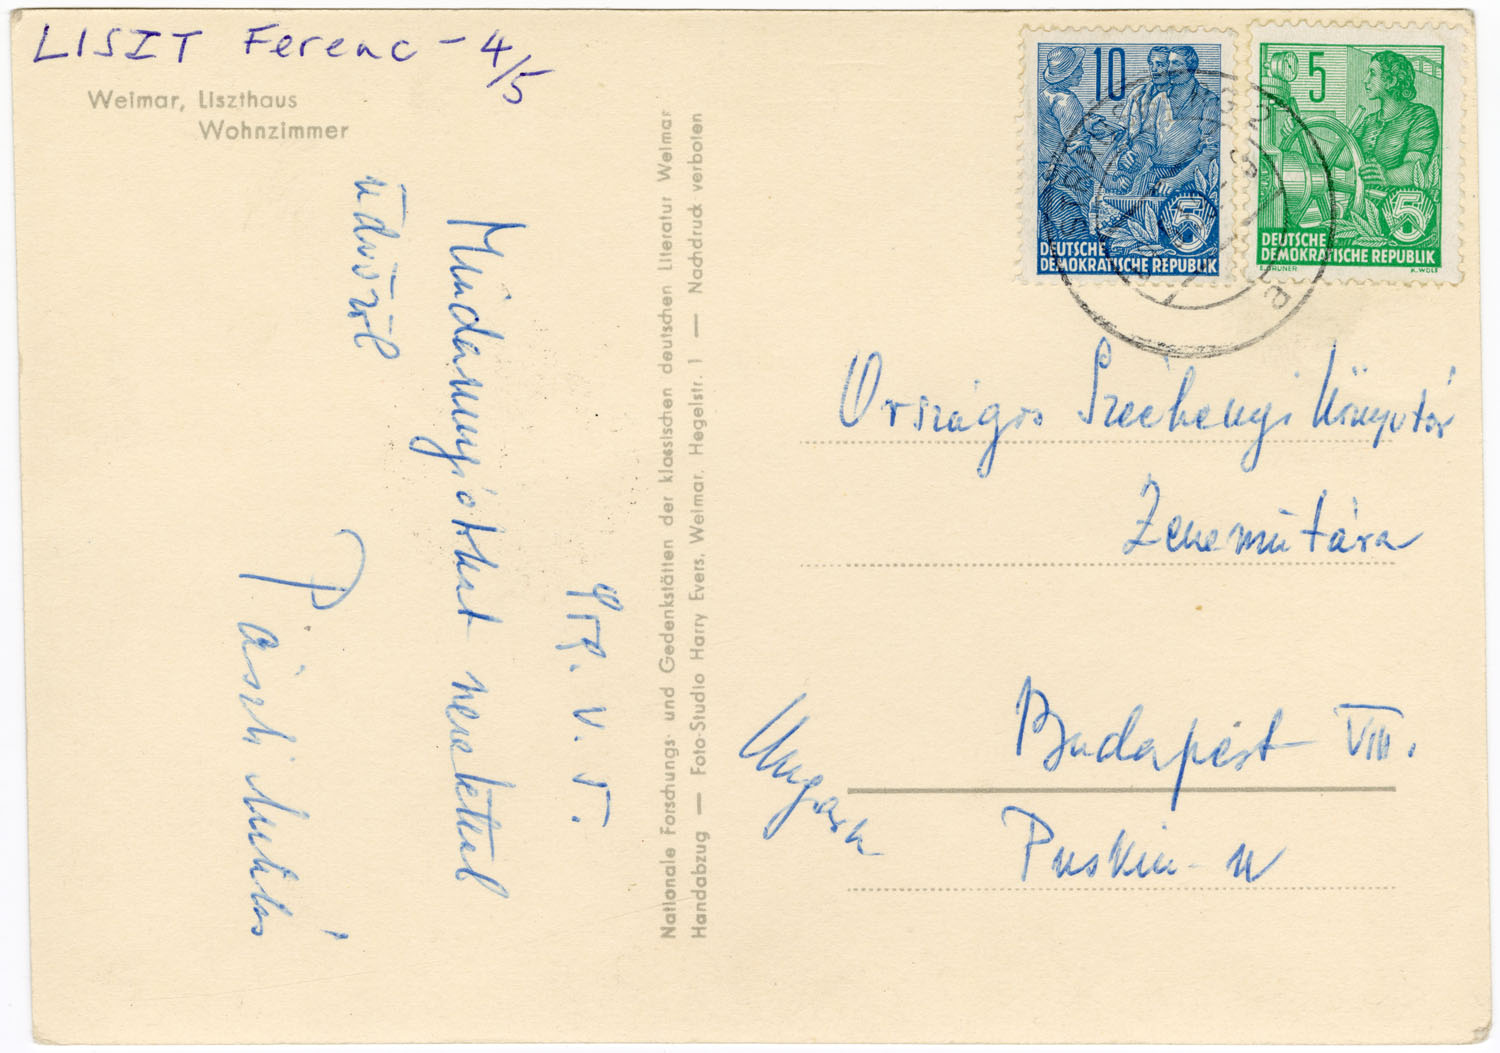 LISZT Ferenc - 4/5
Weimar, Liszthaus
Wohnzimmer
10
DEUTSCHE
DEMOKRATISCHE REPUBLIK
5
5
DEUTSCHE
DEMOKRATISCHE REPUBLIK
E. GRUNER
K. WOLF
5
Mindannyiokat szeretettel
üdvözöl
Nationale Forschungs- und Gedenkstätten der klassischen deutschen Literatur Weimar
Handabzug — Foto-Studio Harry Evers, Weimar, Hegelstr. 1 — Nachdruck verboten
Országos Széchenyi Könyvtár
Zeneműtára
Budapest VIII.
Puskin-u
Ungarn